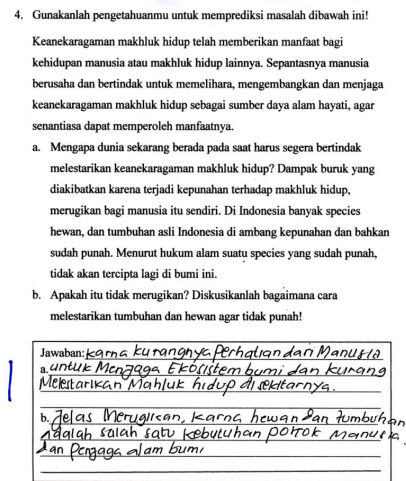 4. Gunakanlah pengetahuanmu untuk memprediksi masalah dibawah ini!
Keanekaragaman makhluk hidup telah memberikan manfaat bagi
kehidupan manusia atau makhluk hidup lainnya. Sepantasnya manusia
berusaha dan bertindak untuk memelihara, mengembangkan dan menjaga
keanekaragaman makhluk hidup sebagai sumber daya alam hayati, agar
senantiasa dapat memperoleh manfaatnya.
a. Mengapa dunia sekarang berada pada saat harus segera bertindak
melestarikan keanekaragaman makhluk hidup? Dampak buruk yang
diakibatkan karena terjadi kepunahan terhadap makhluk hidup,
merugikan bagi manusia itu sendiri. Di Indonesia banyak species
hewan, dan tumbuhan asli Indonesia di ambang kepunahan dan bahkan
sudah punah. Menurut hukum alam suatu species yang sudah punah,
tidak akan tercipta lagi di bumi ini.
b. Apakah itu tidak merugikan? Diskusikanlah bagaimana cara
melestarikan tumbuhan dan hewan agar tidak punah!
Jawaban: karna kurangnya perhatian dari Manusia
a. untuk Menjaga Ekosistem bumi dan kurang
Melestarikan Mahluk hidup di sekitarnya.
b. Jelas Merugikan, karna hewan dan tumbuhan
adalah salah satu kebutuhan pokok manusia
dan Penjaga alam bumi